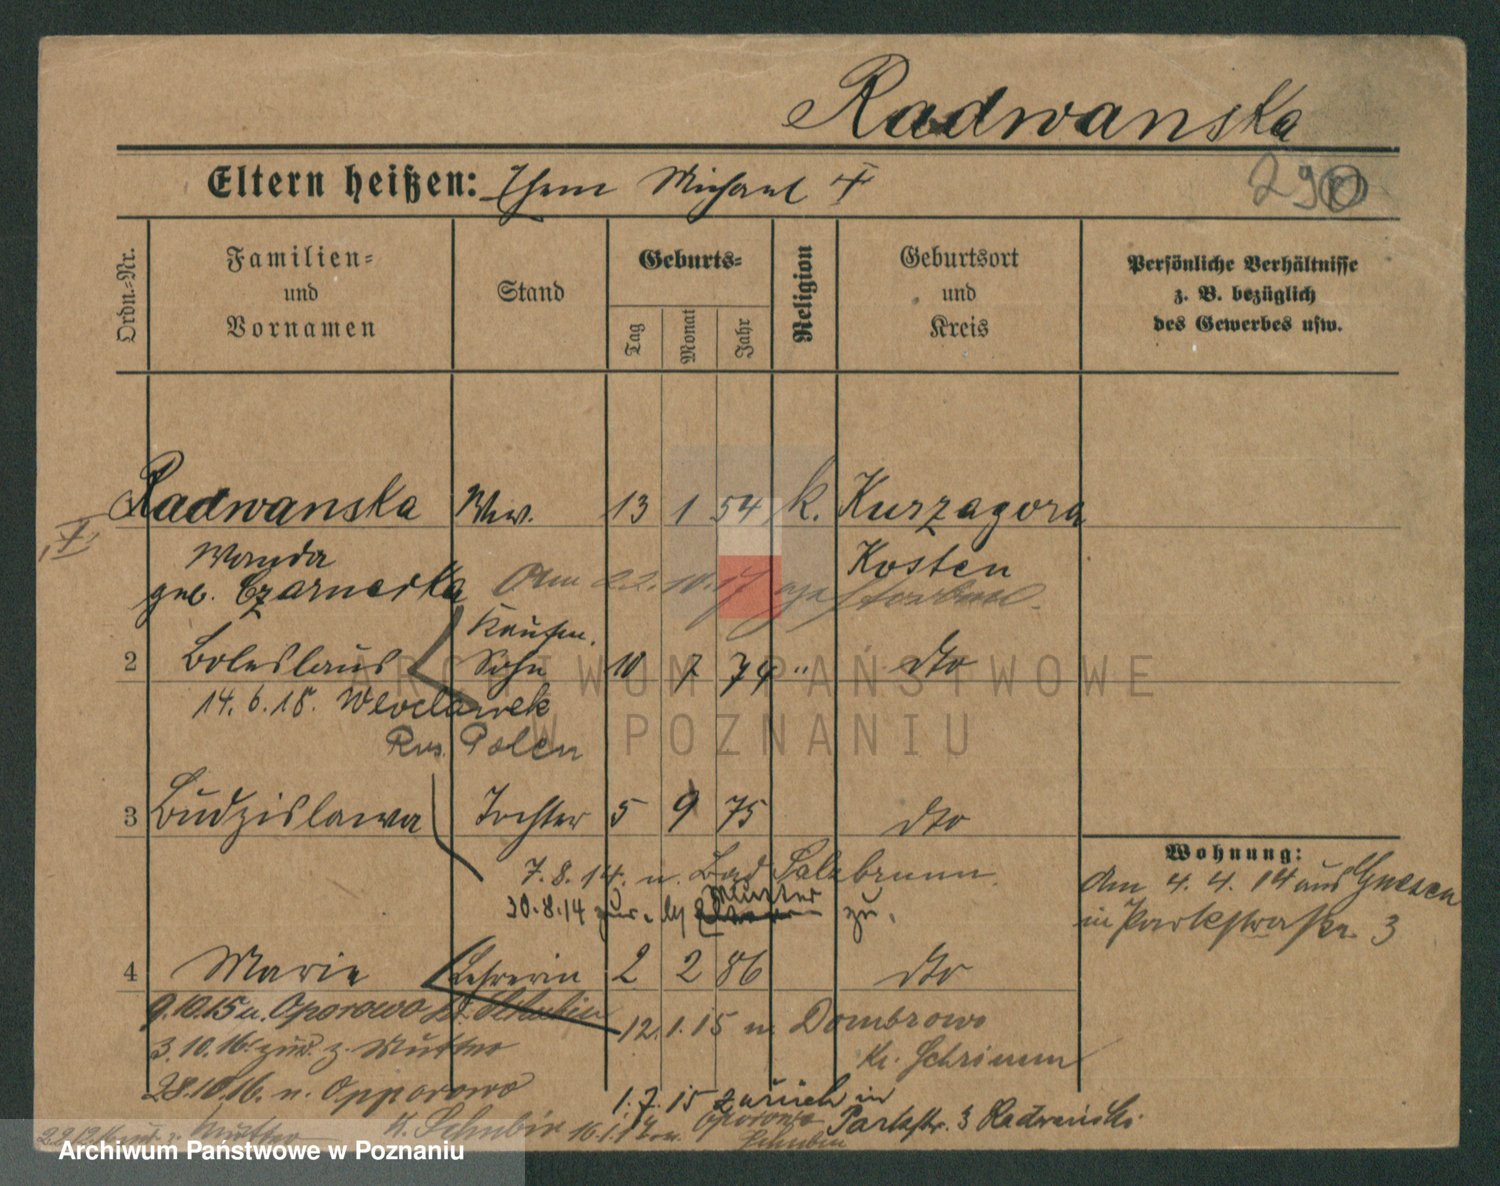 Radwanska
290
Eltern heißen: Ehem Michael †
Ordn.-Nr.
Familien- und Vornamen
Stand
Geburts-
Tag
Monat
Jahr
Religion
Geburtsort und Kreis
Persönliche Verhältnisse z. B. bezüglich des Gewerbes usw.
Radwanska Ww. 13 1 54 k. Kurzagora
†
Wanda Kosten
geb. Czarnecka Am 22.10.17 gestorben.
Kaufm.
2 Boleslaus Sohn 10 7 74 " dto
14. 6. 18. Wloclawek
Rus. Polen
3 Budzislawa Tochter 5 9 75 dto
7. 8. 14. n. Bad Salzbrunn.
30.8.14 zur. Mutter zu.
Wohnung:
Am 4. 4. 14 aus Gnesen
in Parkstraße 3
4 Marie Lehrerin 2 2 86 dto
9.10.15 n. Oporowo Kr. Schubin
12. 1. 15 n Dombrowo
Kr. Schrimm
3.10.16. zur. z. Mutter
28.10.16. n. Opporowo
K. Schubin
1. 7. 15 zurück in
Parkstr. 3 Radwanski
16.1.17 Oporowo
Schubin
Mutter
ARCHIWUM PAŃSTWOWE
W POZNANIU
Archiwum Państwowe w Poznaniu